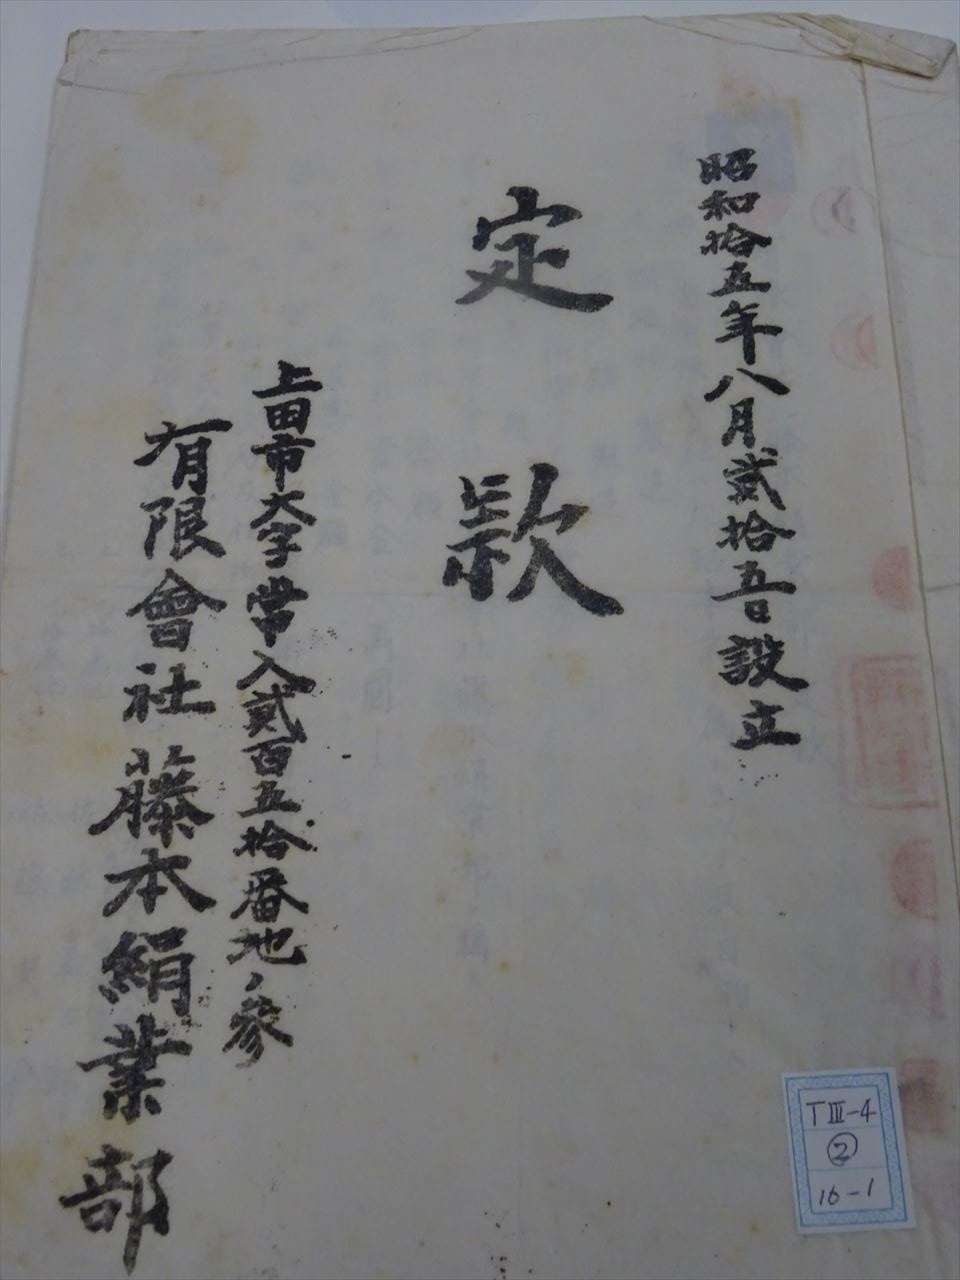 昭和拾五年八月貳拾五日設立
定款
上田市大字常入貳百五拾番地ノ參
有限會社藤本絹業部
TⅢ-4
②
16-1